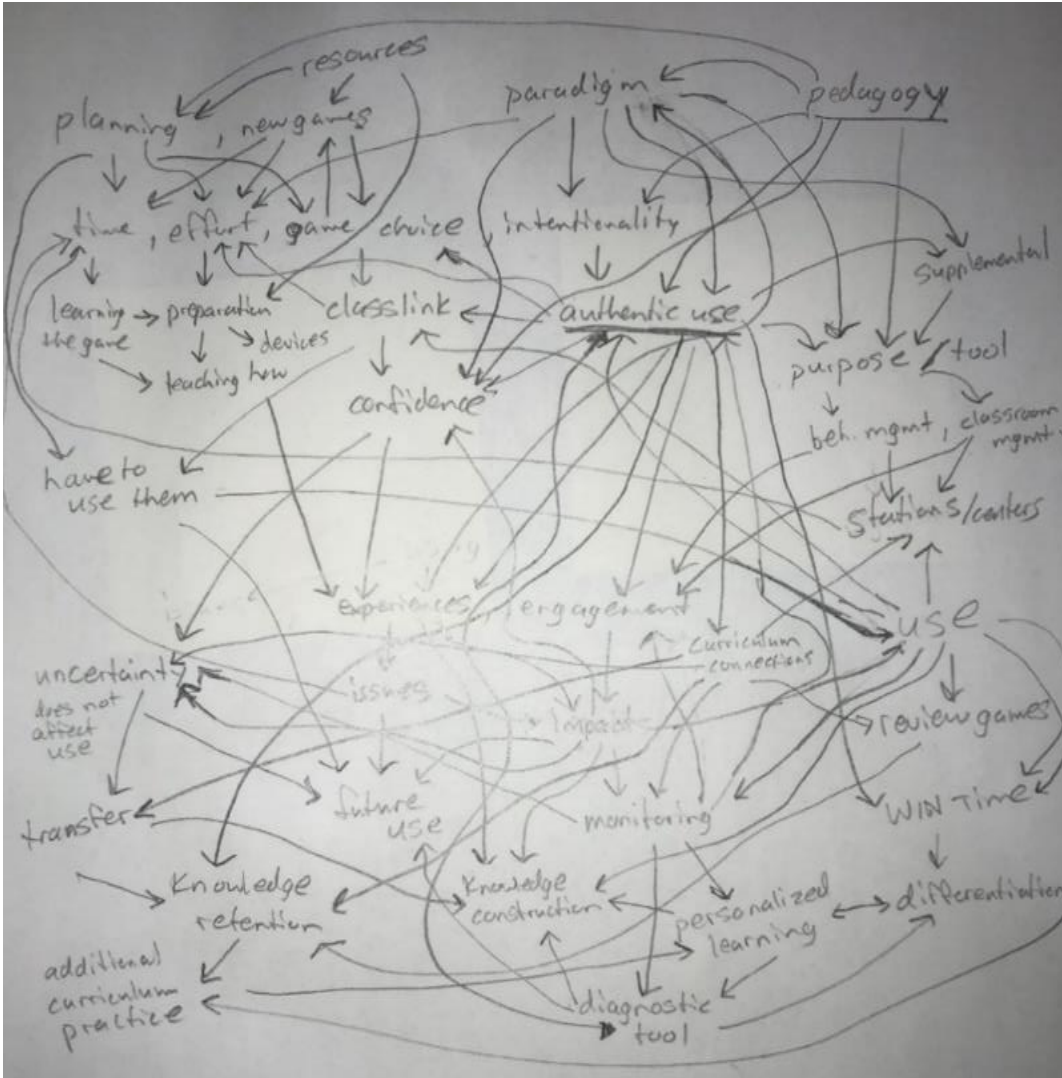 resources
paradigm
pedagogy
planning, new games
time, effort, game choice
intentionality
supplemental
learning
the game
preparation
devices
teaching how
classlink
authentic use
purpose / tool
confidence
beh. mgmt, classroom
mgmt.
have to
use them
stations/centers
experiences, engagement
use
curriculum
connections
uncertainty
does not
affect
use
issues
impact
review games
transfer
future
use
monitoring
WIN Time
Knowledge
retention
Knowledge
construction
personalized
learning
differentiation
additional
curriculum
practice
diagnostic
tool